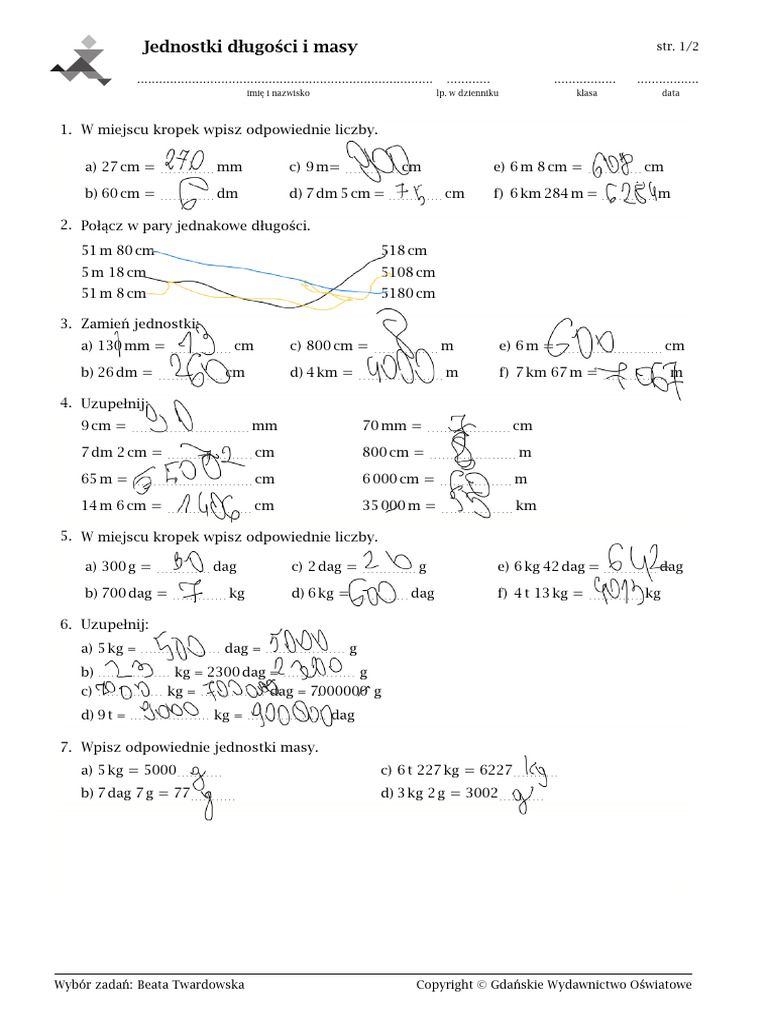 Jednostki długości i masy
str. 1/2
imię i nazwisko lp. w dzienniku klasa data
1. W miejscu kropek wpisz odpowiednie liczby.
a) 27 cm = 270 mm c) 9 m = 900 cm e) 6 m 8 cm = 608 cm
b) 60 cm = 6 dm d) 7 dm 5 cm = 75 cm f) 6 km 284 m = 6284 m
2. Połącz w pary jednakowe długości.
51 m 80 cm 518 cm
5 m 18 cm 5108 cm
51 m 8 cm 5180 cm
3. Zamień jednostki:
a) 130 mm = 13 cm c) 800 cm = 8 m e) 6 m = 600 cm
b) 26 dm = 260 cm d) 4 km = 4000 m f) 7 km 67 m = 7067 m
4. Uzupełnij:
9 cm = 90 mm 70 mm = 7 cm
7 dm 2 cm = 72 cm 800 cm = 8 m
65 m = 6500 cm 6 000 cm = 60 m
14 m 6 cm = 1406 cm 35 000 m = 35 km
5. W miejscu kropek wpisz odpowiednie liczby.
a) 300 g = 30 dag c) 2 dag = 20 g e) 6 kg 42 dag = 642 dag
b) 700 dag = 7 kg d) 6 kg = 600 dag f) 4 t 13 kg = 4013 kg
6. Uzupełnij:
a) 5 kg = 500 dag = 5000 g
b) 23 kg = 2300 dag = 23000 g
c) 7000 kg = dag = 7000000 g
d) 9 t = 9000 kg = 900000 dag
7. Wpisz odpowiednie jednostki masy.
a) 5 kg = 5000 g c) 6 t 227 kg = 6227 kg
b) 7 dag 7 g = 77 g d) 3 kg 2 g = 3002 g
Wybór zadań: Beata Twardowska Copyright © Gdańskie Wydawnictwo Oświatowe